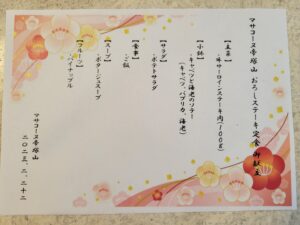 マサコーヌ帝塚山 おろしステーキ定食 御献立
【主菜】
・牛サーロインステーキ肉(100g)
【小鉢】
・キャベツと海老のソテー
(キャベツ、パプリカ、海老)
【サラダ】
・ポテトサラダ
【食事】
・ご飯
【スープ】
・ポタージュスープ
【フルーツ】
・パイナップル
マサコーヌ帝塚山
二〇二五、二、二十二